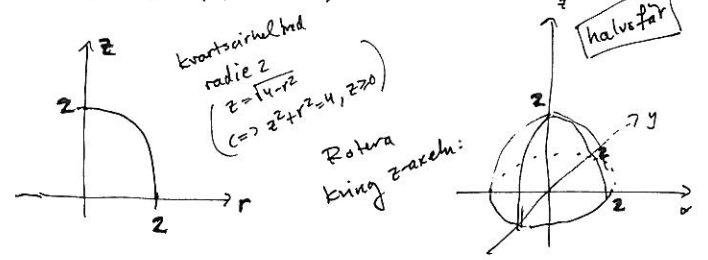 z
kvartscirkel med
radie 2
z=√4-r²
(<=> z²+r²=4, z≥0)
2
r
2
Rotera
kring z-axeln:
z
halvsfär
2
y
2
2
x